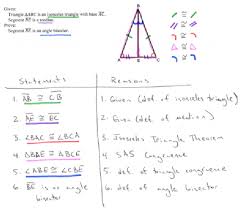 Given:
Triangle ΔABC is an isosceles triangle with base AC.
Segment BE is a median.
Prove:
Segment BE is an angle bisector.
B
A E C
Statements Reasons
1. AB ≅ CB 1. Given (def. of isosceles triangle)
2. AE ≅ EC 2. Given (def. of median)
3. ∠BAC ≅ ∠BCA 3. Isosceles Triangle Theorem
4. ΔBAE ≅ ΔBCE 4. SAS Congruence
5. ∠ABE ≅ ∠CBE 5. def. of triangle congruence
6. BE is an angle bisector 6. def of angle bisector